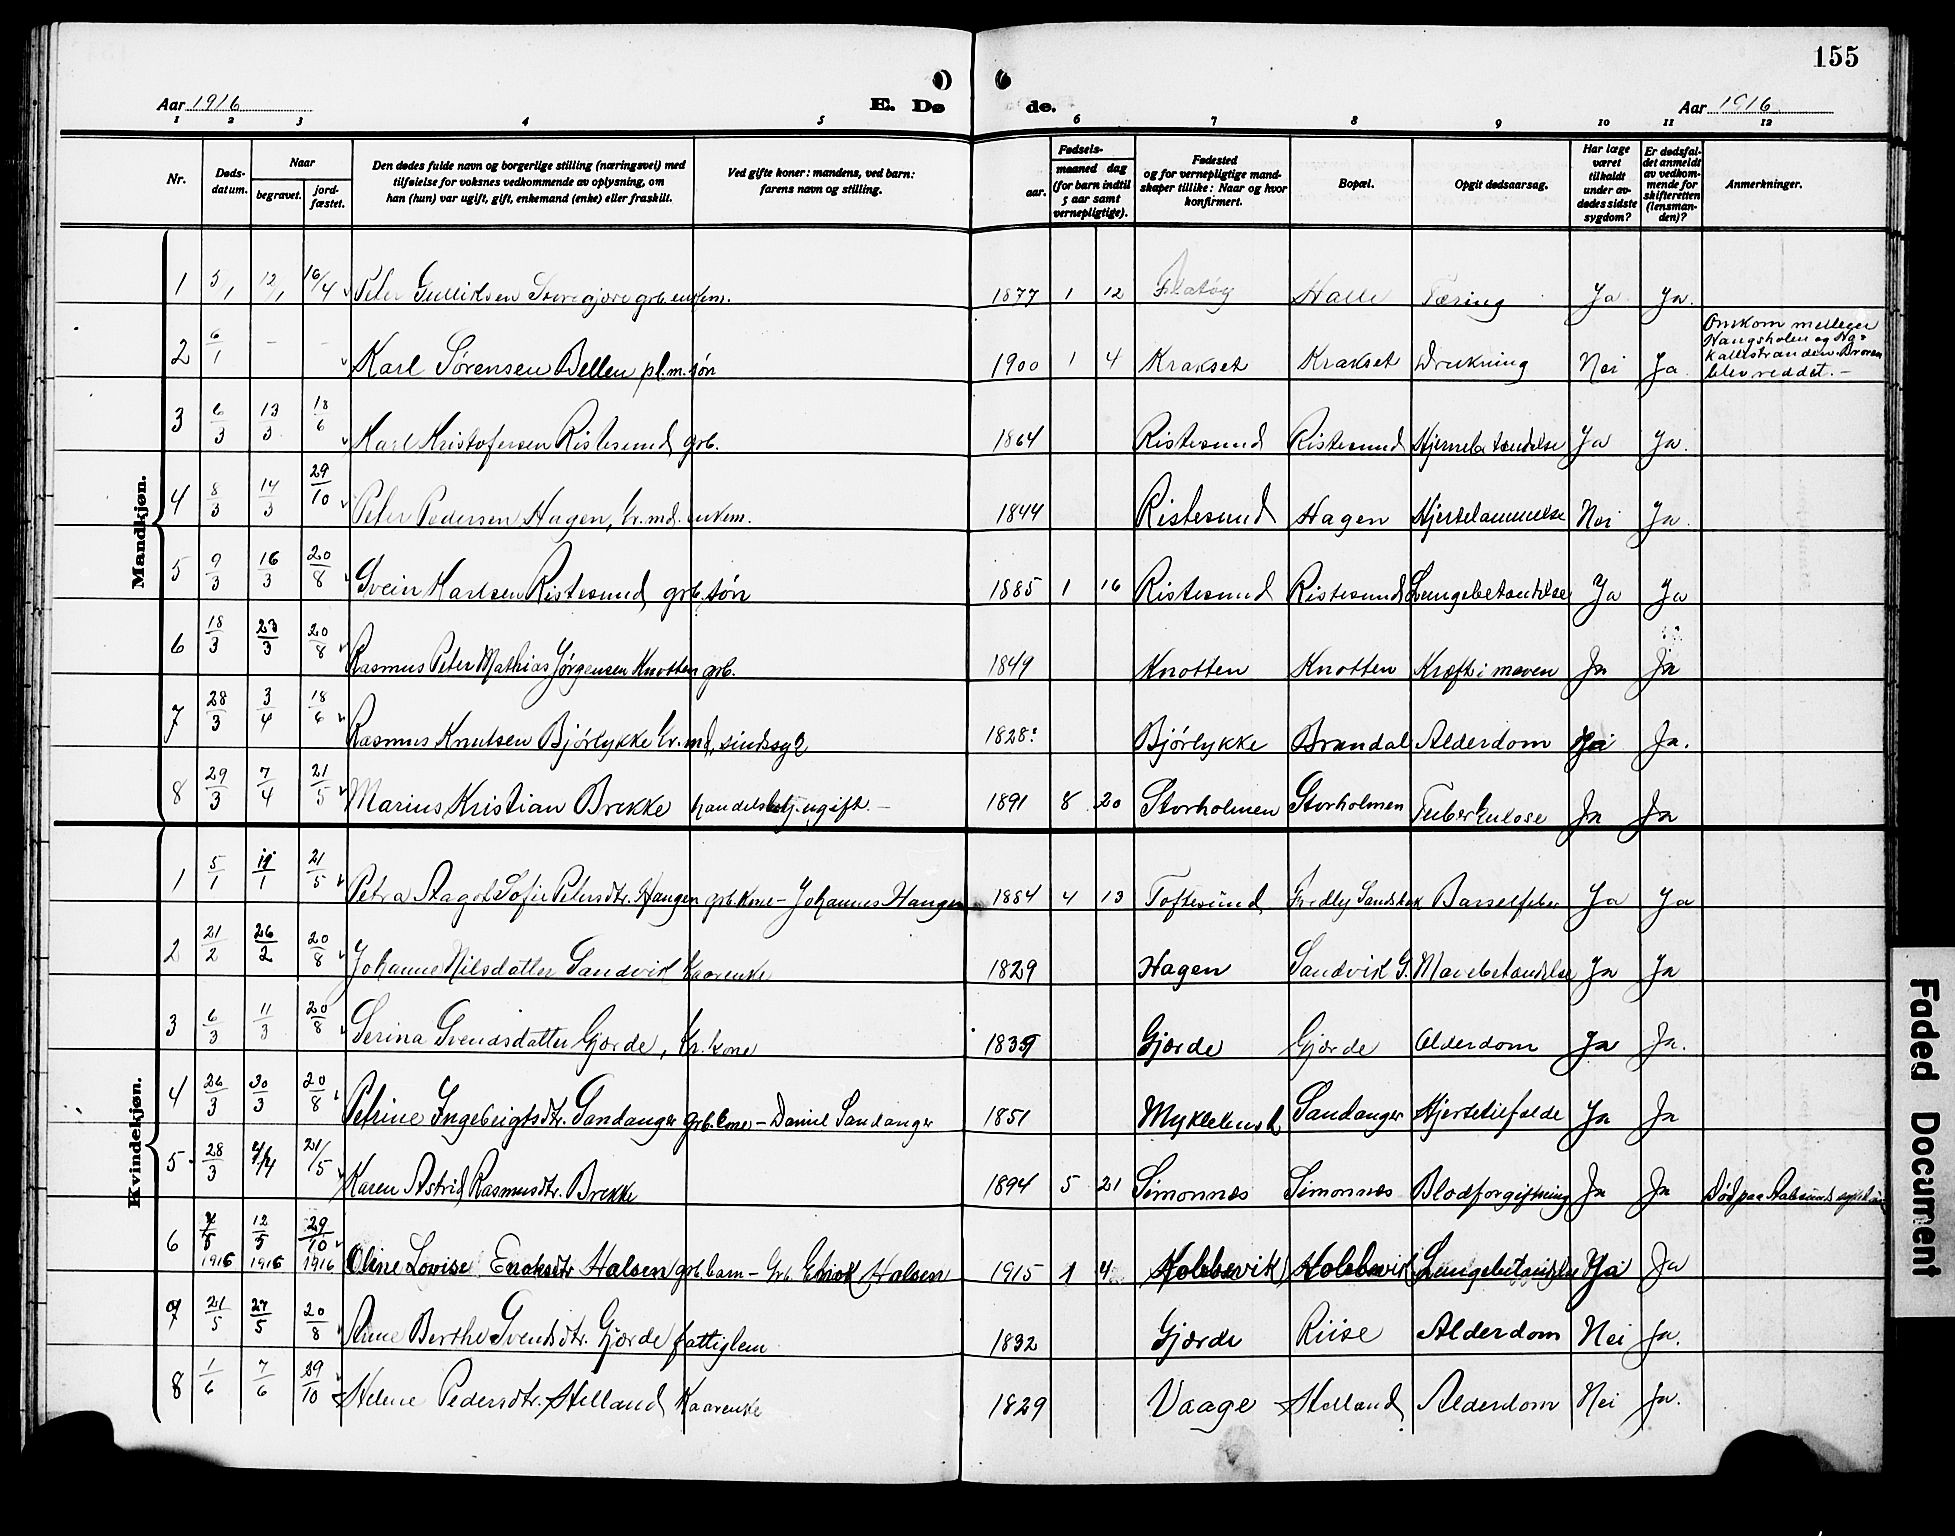 155
Aar 1916 E. Dø de. Aar 1916
1 2 3 4 5 6 7 8 9 10 11 12
Nr. Døds-datum. Naar begravet. jord-fæstet. Den dødes fulde navn og borgerlige stilling (næringsvei) med tilføielse for voksnes vedkommende av oplysning, om han (hun) var ugift, gift, enkemand (enke) eller fraskilt. Ved gifte koner: mandens, ved barn: farens navn og stilling. Fødsels- aar. maaned dag (for barn indtil 5 aar samt vernepligtige). Fødested og for vernepligtige mand-skaper tillike: Naar og hvor konfirmert. Bopæl. Opgit dødsaarsag. Har læge været tilkaldt under av-dødes sidste sygdom? Er dødsfal-det anmeldt av vedkom-mende for skifteretten (lensman-den)? Anmerkninger.
Mandkjøn.
1 5/1 12/1 16/4 Peter Gulliksen grb. enkem. 1877 1 12 Flatøy Halle Tæring Ja Ja.
2 6/1 - - Karl Sørensen Bellen pl.m. søn 1900 1 4 Krakset Krakset Drukning Nei Ja. Omkom mellem Hangsholen og Ha=kallestranden. Broren blev reddet. -
3 6/3 13/3 18/6 Karl Kristofersen Ristesund grb. 1864 Ristesund Ristesund Hjernebetændelse Ja Ja.
4 8/3 14/3 29/10 Peter Pedersen Hagen, kr.md. enkem. 1844 Ristesund Hagen Hjertelammelse Nei Ja.
5 9/3 16/3 20/8 Svein Karlsen Ristesund grb. søn 1885 1 16 Ristesund Ristesund Lungebetændelse Ja Ja
6 18/3 23/3 20/8 Rasmus Peter Mathias Jørgensen Knotten grb. 1849 Knotten Knotten Kræft i maven Ja Ja
7 28/3 3/4 18/6 Rasmus Knutsen Bjørlykke kr.md, sindssyg 1828? Bjørlykke Brandal Alderdom Nei Ja.
8 29/3 7/4 21/5 Marius Kristian Brekke handelsbetj. ugift. - 1891 8 20 Storholmen Storholmen Tuberkulose Ja Ja
Kvindekjøn.
1 5/1 11/1 21/5 Petra Aagot Sofie Petersdtr. Hangen grb. kone - Johannes Hangen 1884 4 13 Toftesund Fredly Sandshak Barselfeber Ja Ja
2 21/2 26/2 20/8 Johanne Nilsdatter Sandvik Kaarenke 1829 Hagen Sandvik G. Mavebetændelse Ja Ja
3 6/3 11/3 20/8 Serina Svendsdatter Gjærde, kr. kone 1839 Gjærde Gjærde Alderdom Ja Ja.
4 26/3 30/3 20/8 Petrine Ingebrigtsdtr. Sandanger grb. kone - Daniel Sandanger 1851 Myklebust Sandanger Hjertetilfælde Ja Ja
5 28/3 4/4 21/5 Karen Astrid Rasmusdtr. Brekke 1894 5 21 Simonnæs Simonnæs Blodforgiftning Ja Ja Død paa Aalesunds
6 7/5 1916 12/5 1916 29/10 1916 Oline Lovise Enoksdtr Halsen grb. barn - Grb. Enok Halsen 1915 1 4 Kolebvik Kolebvik Lungebetændelse Ja Ja
7 21/5 27/5 20/8 Anne Berthe Svendsdtr. Gjærde fattiglem 1832 Gjærde Riise Alderdom Nei Ja.
8 1/6 7/6 29/10 Helene Pedersdtr. Helland Kaarenke 1829 Vaage Helland Alderdom Nei Ja.
Faded Document